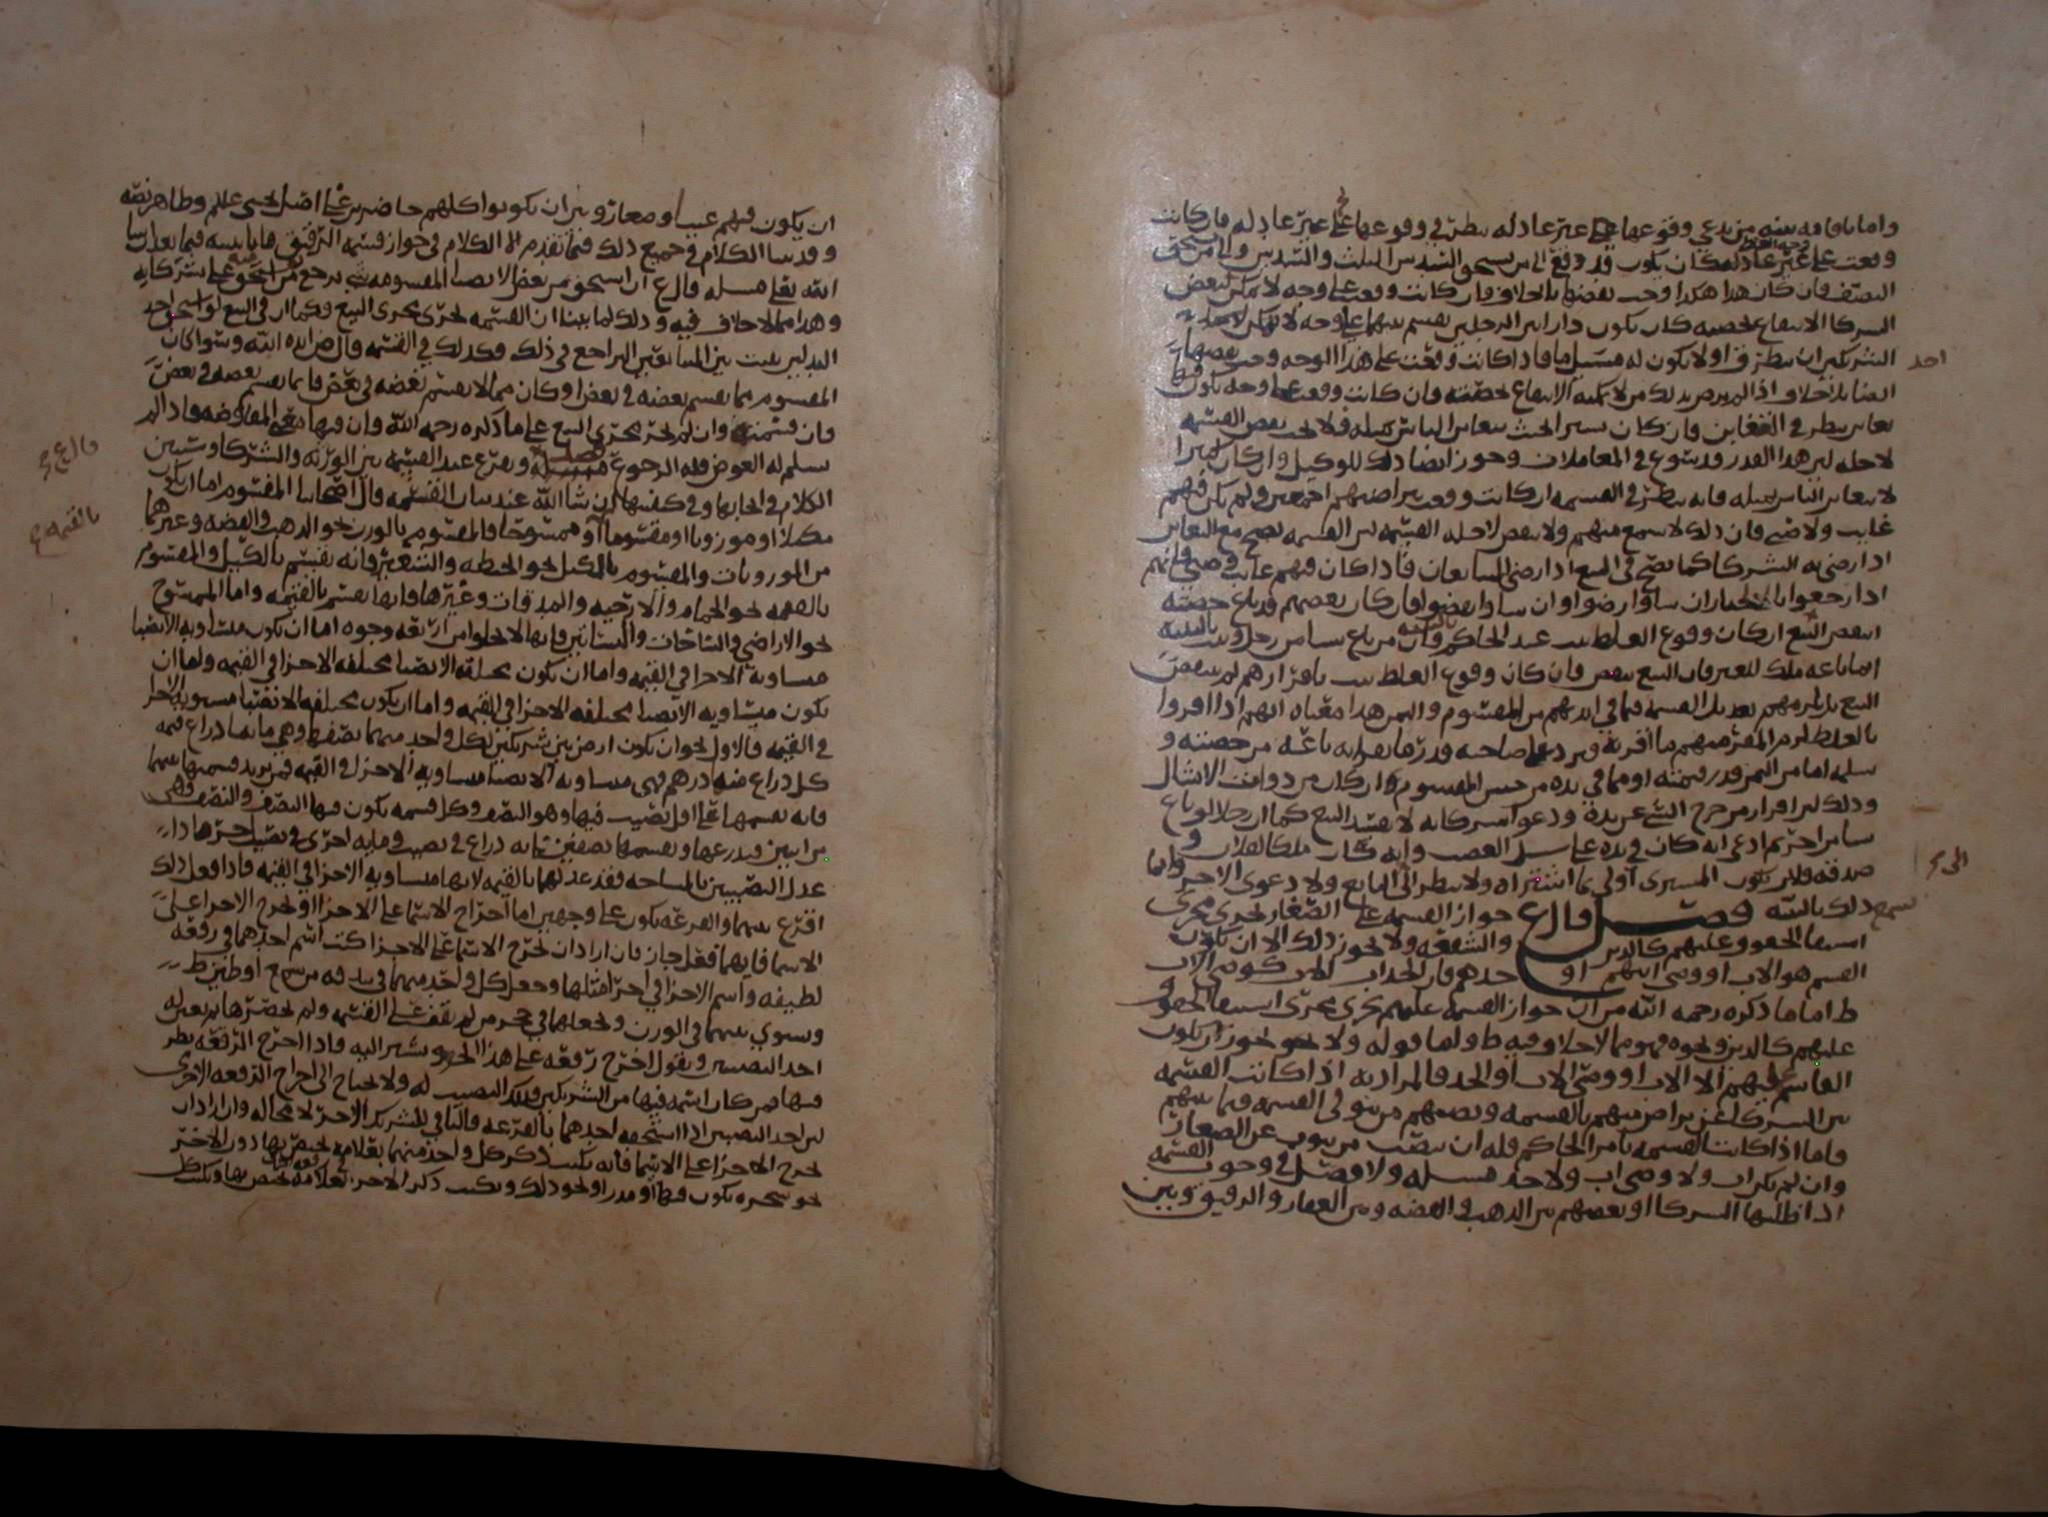 واما ما قامه بينه من يدعي وقوعها على غير عادله نظر في وقوعها على غير عادله فان كانت
وقعت على غير عادله كان يكون قد دفع الى من يستحق السدس الثلث والسدس والى من يستحق
النصف فان كان هذا هكذا وجب نقضها بلا خلاف وان كانت وقعت على وجه لا يمكن لبعض
الشركا الانتفاع بحصته كان يكون دار بين الرجلين يقسم بينهما على وجه لا يمكن لاحد
الشريكين ان يتطرق او لا يكون له مسيل ما فاذا كانت وقعت على هذا الوجه وجب نقضها
احد
ايضا بلا خلاف اذا لم يرض بذلك من لا يمكنه الانتفاع بحصته وان كانت وقعت على وجه يكون فيها
تغابن نظر في التغابن فان كان يسيرا بحيث يتغابن الناس بمثله فلا يجب نقض القسمه
لاجله لان هذا القدر قد يسوغ في المعاملات ويجوز ايضا ذلك للوكيل وان كان كثيرا
لا يتغابن الناس بمثله فانه ينظر في القسمه ان كانت وقعت بتراضيهم اجمعين ولم يكن فيهم
غايب ولا صبي فان ذلك لا يسمع منهم ولا ينقض لاجله القسمه لان القسمه تصح مع التغابن
اذا رضي به الشركا كما يصح في البيع اذا رضي المتبايعان فاذا كان فيهم غايب وصبي فانهم
اذا رجعوا بالخيار ان شاوا رضوا وان شاوا نقضوا فان كان بعضهم قد باع حصته
انتقض البيع ان كان وقوع الغلط ثبت عند الحاكم بالبينه كمن باع شيا من رجل وثبت بالبينه
انما باعه ملك للغير فان البيع ينقض فان كان وقوع الغلط ثبت باقرارهم لم ينتقض
البيع بل يلزمهم تعديل القسمه فيما في ايديهم من المقسوم والثمن هذا معناه انهم اذا اقروا
بالغلط لزم المقر منهم ما اقر به ويرد على صاحبه قدر ما يقول به باعه من حصته و
سلمه اما من الثمن قدر قيمته او مما في يده من جنس المقسوم ان كان من ذوات الامثال
وذلك لان اقرار من خرج الشي عن يده ودعوا شركايه لا يفسد البيع كما ان رجلا لو باع
شيا من اخر ثم ادعى انه كان في يده على سبيل الغصب وانه كان ملكا لفلان و
صدقه فلان يكون المشتري اولى بما اشتراه ولا ينظر الى البايع ولا دعوى الاخر وانما
الى
يسمع ذلك بالبينه فصل قال ع جواز القسمه على الصغار يجري مجرى
استيفا الحقوق عليهم كالدين والشفعه ولا يجوز ذلك الا ان يكون
القسم هو الاب او وصي ابيهم او جدهم فان الجد اب
ط اما ما ذكره رحمه الله من ان جواز القسمه عليهم يجري مجرى استيفا الحقوق
عليهم كالدين ونحوه فهو مما لا خلاف فيه ط ولها قوله ولا يجوز ان يكون
القاسم عليهم الا الاب او وصي الاب او الجد فالمراد به اذا كانت القسمه
بين الشركا عن تراض منهم بالقسمه ونصبهم من يتولى القسمه فيما بينهم
فاما اذا كانت القسمه بامر الحاكم فله ان ينصب من ينوب عن الصغار
وان لم يكن اب ولا وصي اب ولا جد مسله ولا فصل في وجوب القسمه
اذا طلبها الشركا او بعضهم بين الذهب والفضه وبين العقار والرقيق وبين
ان يكون فيهم غيب او صغار وبين ان يكونوا كلهم حاضرين على اصل يحيى عليلم وظاهر نصه
وقد بينا الكلام في جميع ذلك فيما تقدم الا الكلام في جواز قسمه الرقيق فانا نبينه فيما بعد ان شا
الله تعلى مسله قال ع ان استحق من بعض الانصبا المقسومه شي يرجع من استحق عليه على شركايه
وهذا مما لا خلاف فيه وذلك لما بينا ان القسمه تجري مجرى البيع وكما ان في البيع لو استحق احد
البدلين يثبت بين المتبايعين التراجع في ذلك وكذلك في القسمه قال ص ايده الله وسوا كان
المقسوم مما يقسم بعضه في بعض او كان مما لا يقسم بعضه في بعض فان ما يقسم بعضه في بعض
فان قسمته وان لم تجر مجرى البيع على ما ذكره رحمه الله فان فيها معنى المعاوضه فاذا لم
يسلم له العوض فله الرجوع فصل ويقرع عند القسمه بين الورثه والشركا وسنبين
قال ع
الكلام في ايجابها وفي كيفيتها ان شا الله عند بيان القسمه قال اصحابنا المقسوم اما ان يكون
مكيلا او موزونا او مقسوما او ممسوحا فالمقسوم بالوزن نحو الذهب والفضه وغيرهما
بالقيمه
من الموزونات والمقسوم بالكيل نحو الحنطه والشعير فانه يقسم بالكيل والمقسوم
بالقيمه نحو الحمام والارحيه والمدقات وغيرها فانها يقسم بالقيمه واما الممسوح
نحو الاراضي والساحات والبساتين فانها لا تخلوا من اربعه وجوه اما ان يكون متساويه الانصبا
متساويه الاجزا في القيمه واما ان يكون مختلفه الانصبا مختلفه الاجزا في القيمه واما ان
يكون متساويه الانصبا مختلفه الاجزا في القيمه واما ان يكون مختلفه الانصبا مستويه الاجزا
في القيمه فالاول نحو ان يكون ارض بين شريكين لكل واحد منهما نصفها وهي مايتا ذراع قيمه
كل ذراع منها درهم فهي متساويه الانصبا متساويه الاجزا في القيمه فمن يريد قسمتها بينهما
فانه يقسمها على اقل نصيب فيها وهو النصف وكل قسمه يكون فيها النصف والنصف فهي
من اثنين فيذرعها ويقسمها نصفين مايه ذراع في نصيب ومايه اخرى في نصيب اخر فهذا
عدل النصيبين بالمساحه فقد عدلهما بالقيمه لانها متساويه الاجزا في القيمه فاذا فعل ذلك
اقرع بينهما والقرعه يكون على وجهين اما اخراج الاسما على الاجزا او تخرج الاجزا على
الاسما فايهما فعل جاز فان اراد ان يخرج الاسما على الاجزا كتب اسم احدهما في رقعه
لطيفه واسم الاخر في اخرى مثلها وجعل كل واحد منهما في بندقه من شمع او طين ط
وسوي بينهما في الوزن ويجعلهما في حجر من لم يقف على القسمه ولم يحضرها ثم يعين له
احد النصيبين ويقول اخرج رقعه على هذا الجزو ويشير اليه فاذا اخرج الرقعه نظر
فيها فمن كان اسمه فيها من الشريكين فذلك النصيب له ولا يحتاج الى اخراج الرقعه الاخرى
لان احد النصيبين اذا استحقه احدهما بالقرعه فالباقي للشريك الاخر لا محاله وان اراد ان
يخرج الاجزا على الاسما فانه يكتب ذكر كل واحد منهما بعلامه يختص بها دون الاخر
نحو شجره يكون فيها او مدر او نحو ذلك ويكتب ذكر الاخر بعلامه يختص بها ويكتب كل